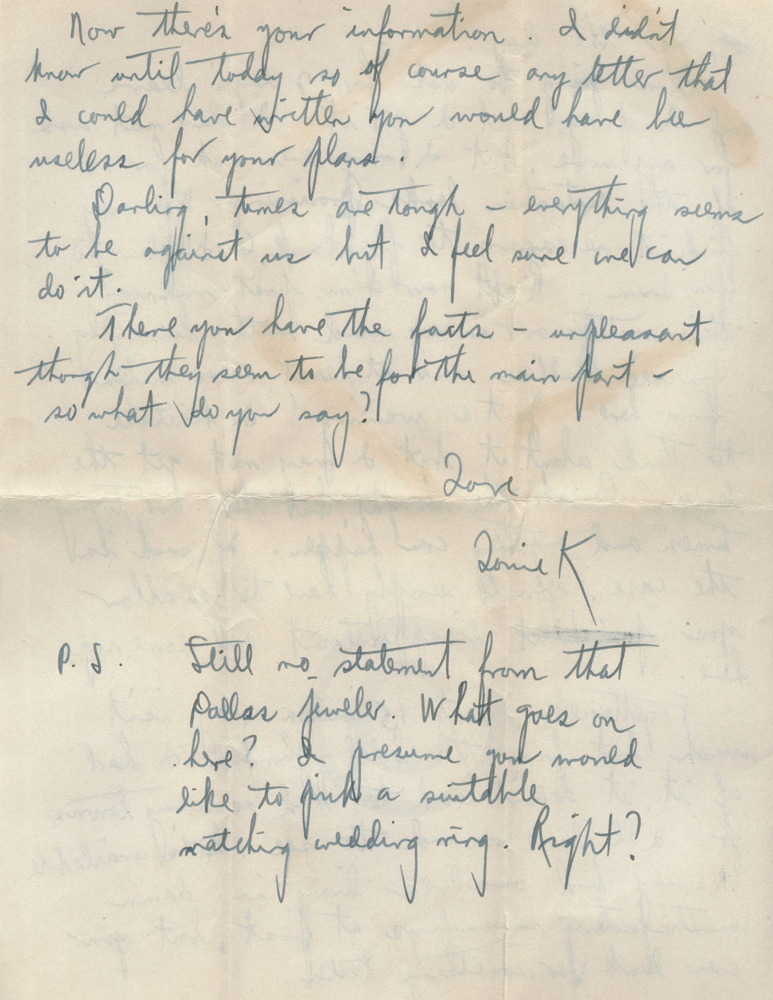 Now there's your information. I didn't
know until today so of course any letter that
I could have written you would have been
useless for your plans.
Darling, times are tough - everything seems
to be against us but I feel sure we can
do it.
There you have the facts - unpleasant
though they seem to be for the main part -
so what do you say?
Love
K
P.S. Still no statement from that
Dallas jeweler. What goes on
here? I presume you would
like to pick a suitable
matching wedding ring. Right?